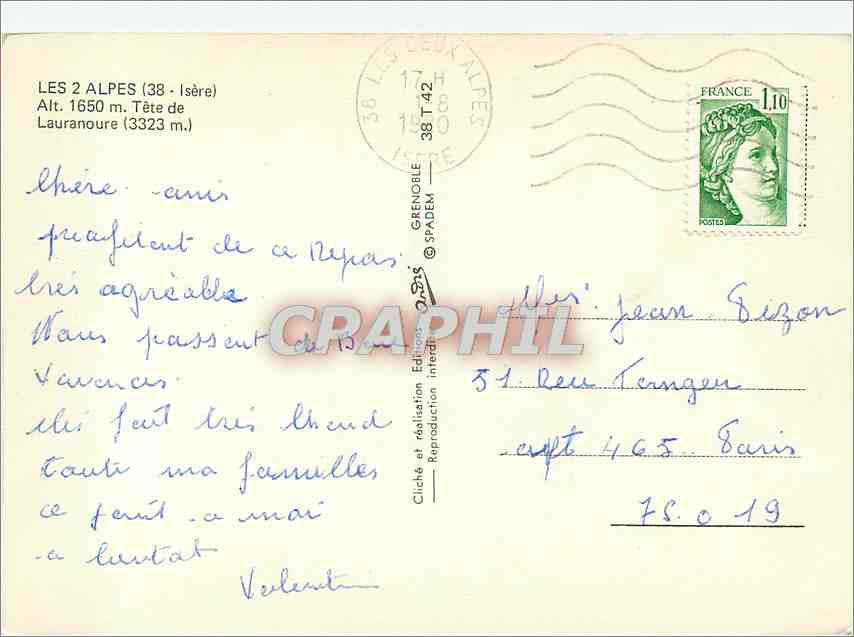 LES 2 ALPES (38 - Isère)
Alt. 1650 m. Tête de
Lauranoure (3323 m.)
38 LES DEUX ALPES
17 H
1 8
1980
ISERE
FRANCE 1,10
POSTES
Chère amis
proafitent de ce Repas
très agréable
Nous passent de Bone
Vacances
Ms fait très Chaud
touti ma familles
ce joint a moi
a bientat
Valentin
Mes. Jean Pizon
51. Reu
apt 465 Paris
75.019
Cliché et réalisation Editions André GRENOBLE 38 T 42
Reproduction interdite © SPADEM
CRAPHIL